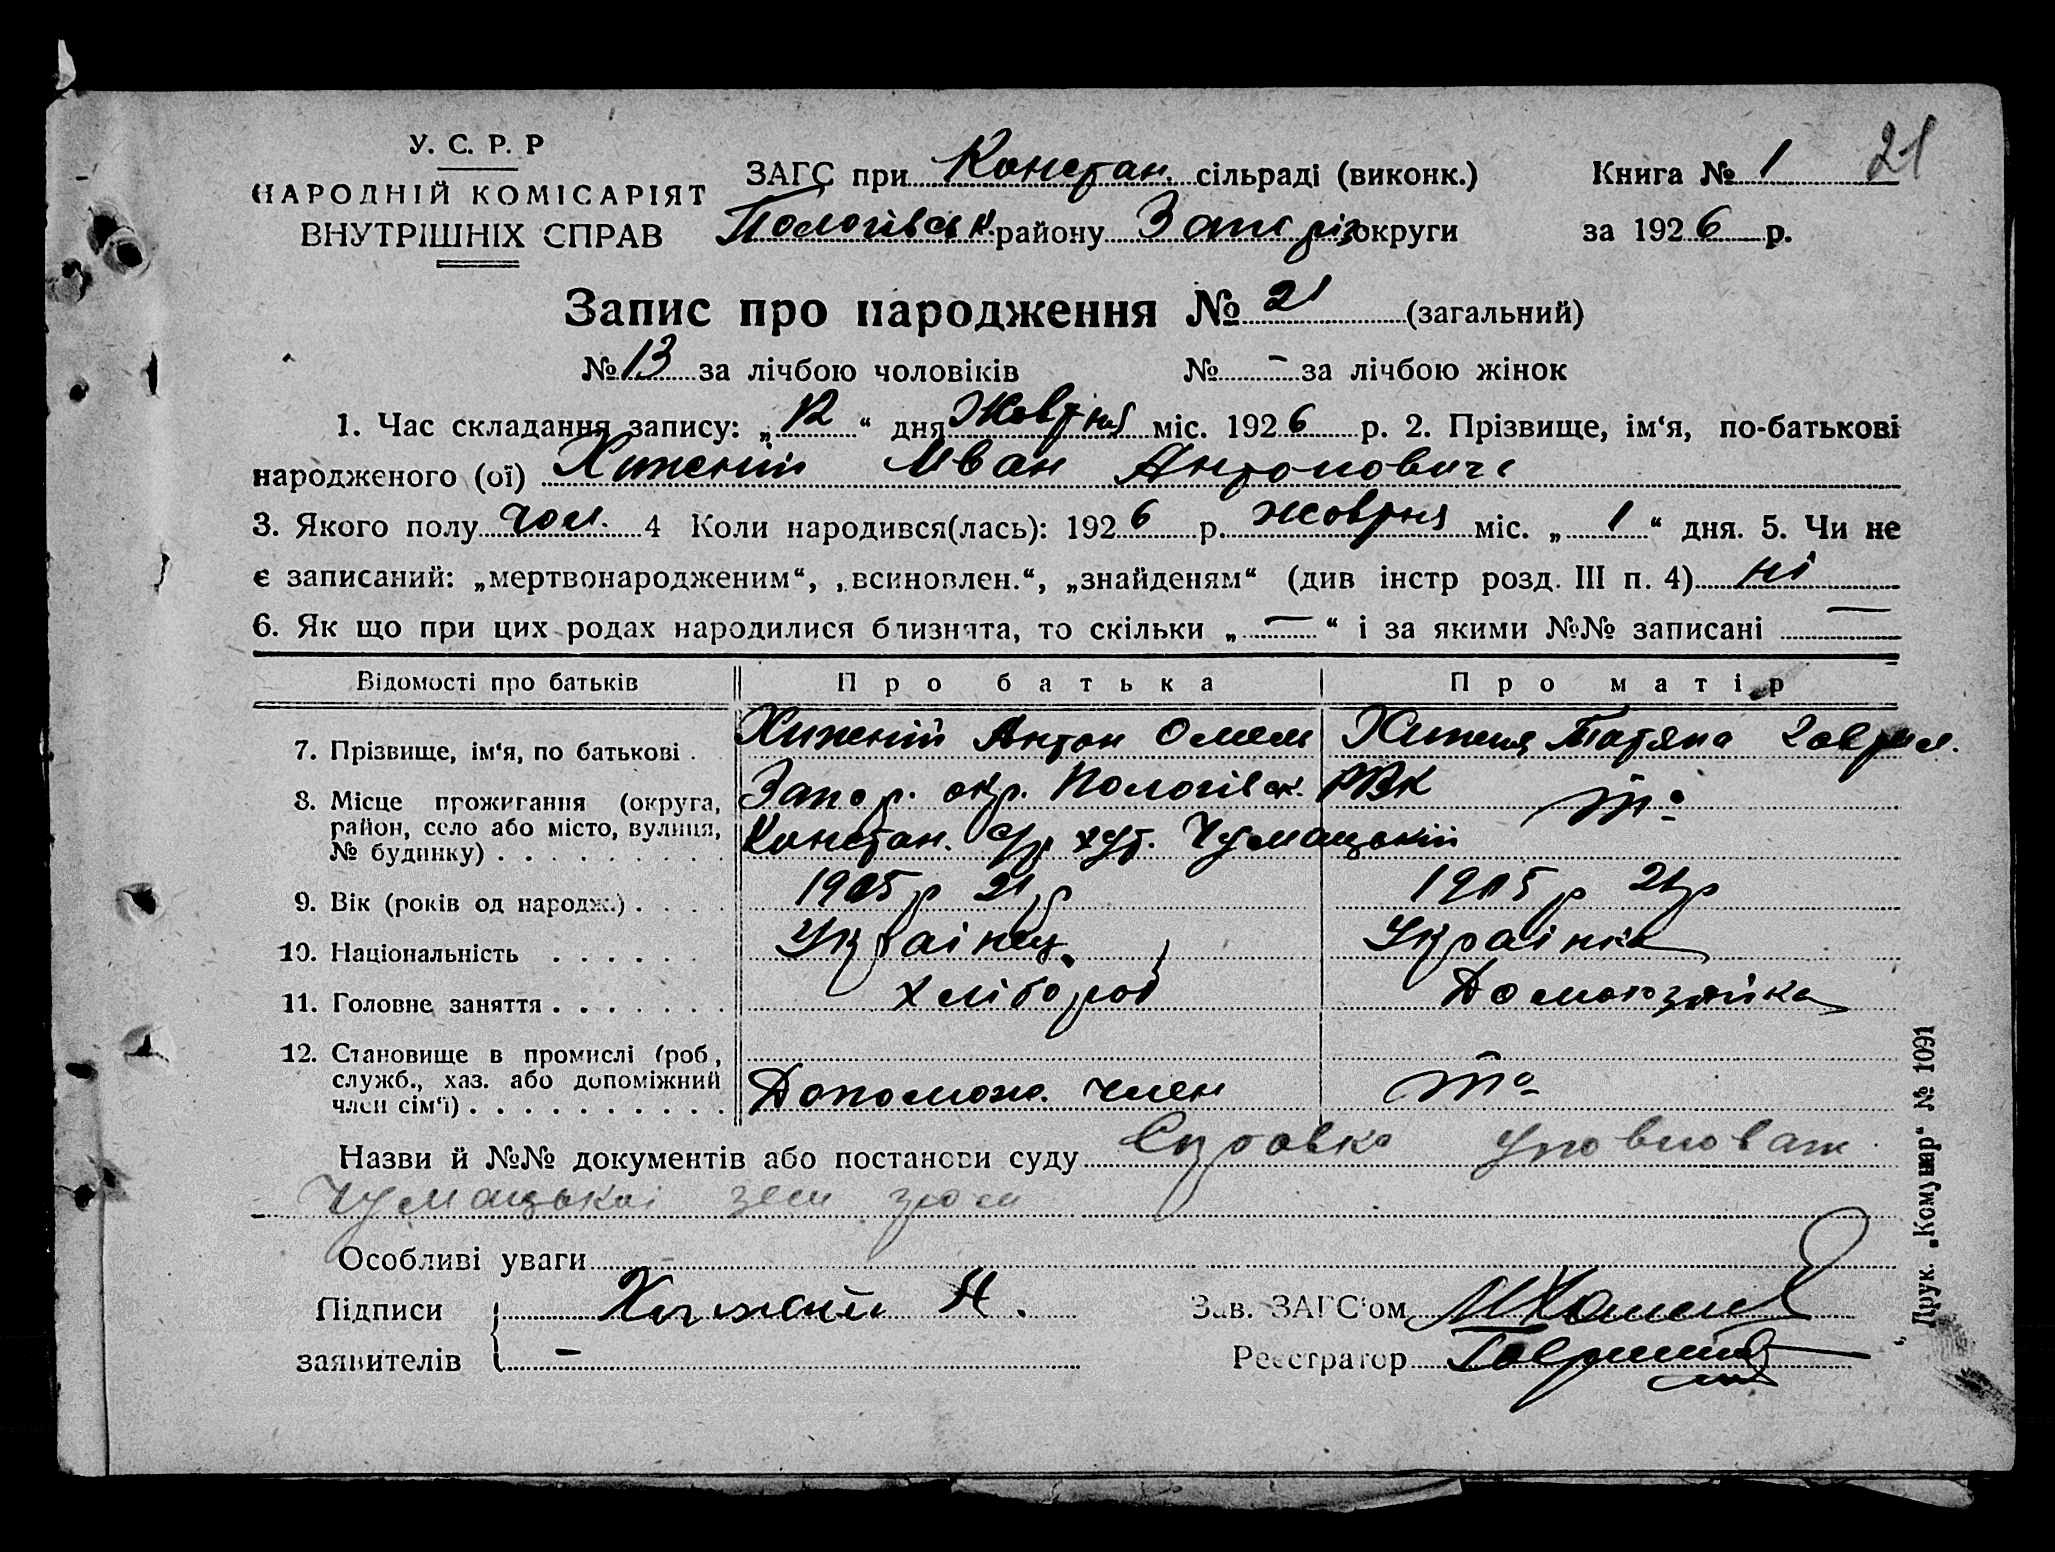 У. С. Р. Р
НАРОДНІЙ КОМІСАРІЯТ
ВНУТРІШНІХ СПРАВ
ЗАГС при Констан. сільраді (виконк.)
Пологівськ. району Запоріз округи
Книга № 1 21
за 1926 р.
Запис про народження № 21 (загальний)
№ 13 за лічбою чоловіків № – за лічбою жінок
1. Час складання запису: „12“ дня Жовтня міс. 1926 р. 2. Прізвище, ім‘я, по-батькові
народженого (ої) Хижній Иван Антонович
3. Якого полу чол. 4 Коли народився(лась): 1926 р. жовтня міс. „1“ дня. 5. Чи не
є записаний: „мертвонародженим“, „всиновлен.“, „знайденям“ (див інстр розд. III п. 4) ні
6. Як що при цих родах народилися близнята, то скільки „—“ і за якими №№ записані —
Відомості про батьків Про батька Про матір
7. Прізвище, ім‘я, по батькові . Хижній Антон Омел Хижня Татяна Гаврил.
8. Місце прожигання (округа, район, село або місто, вулиця, № будинку) Запор. окр. Пологівск. РВК то
Констан. с/р хут. Чумацькій
9. Вік (років од народж.) 1905 р 21 р 1905 р 21 р
10. Національність Українец Українка
11. Головне заняття Хлібороб Домохозяйка
12. Становище в промислі (роб, служб., хаз. або допоміжний член сім‘ї) Допомож. член то
Назви й №№ документів або постанови суду Справка уповноваж
Чумацькоі зем гром
Особливі уваги –
Підписи Хижній А. Зав. ЗАГС‘ом
заявителів – Реєстратор
Друк. „Комунар“ № 1091